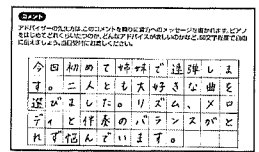 コメント
アドバイザーの先生方は、このコメントを頼りに皆方へのメッセージを書かれます。ピアノ
をはじめてどれくらいたつのか、どんなアドバイスが欲しいのかなど、60文字程度で自由
に伝えましょう。当日受付にお渡しください。
今回初めて姉妹で連弾しま
す。二人とも大好きな曲を
選びました。リズム、メロ
ディと伴奏のバランスがと
れず悩んでいます。